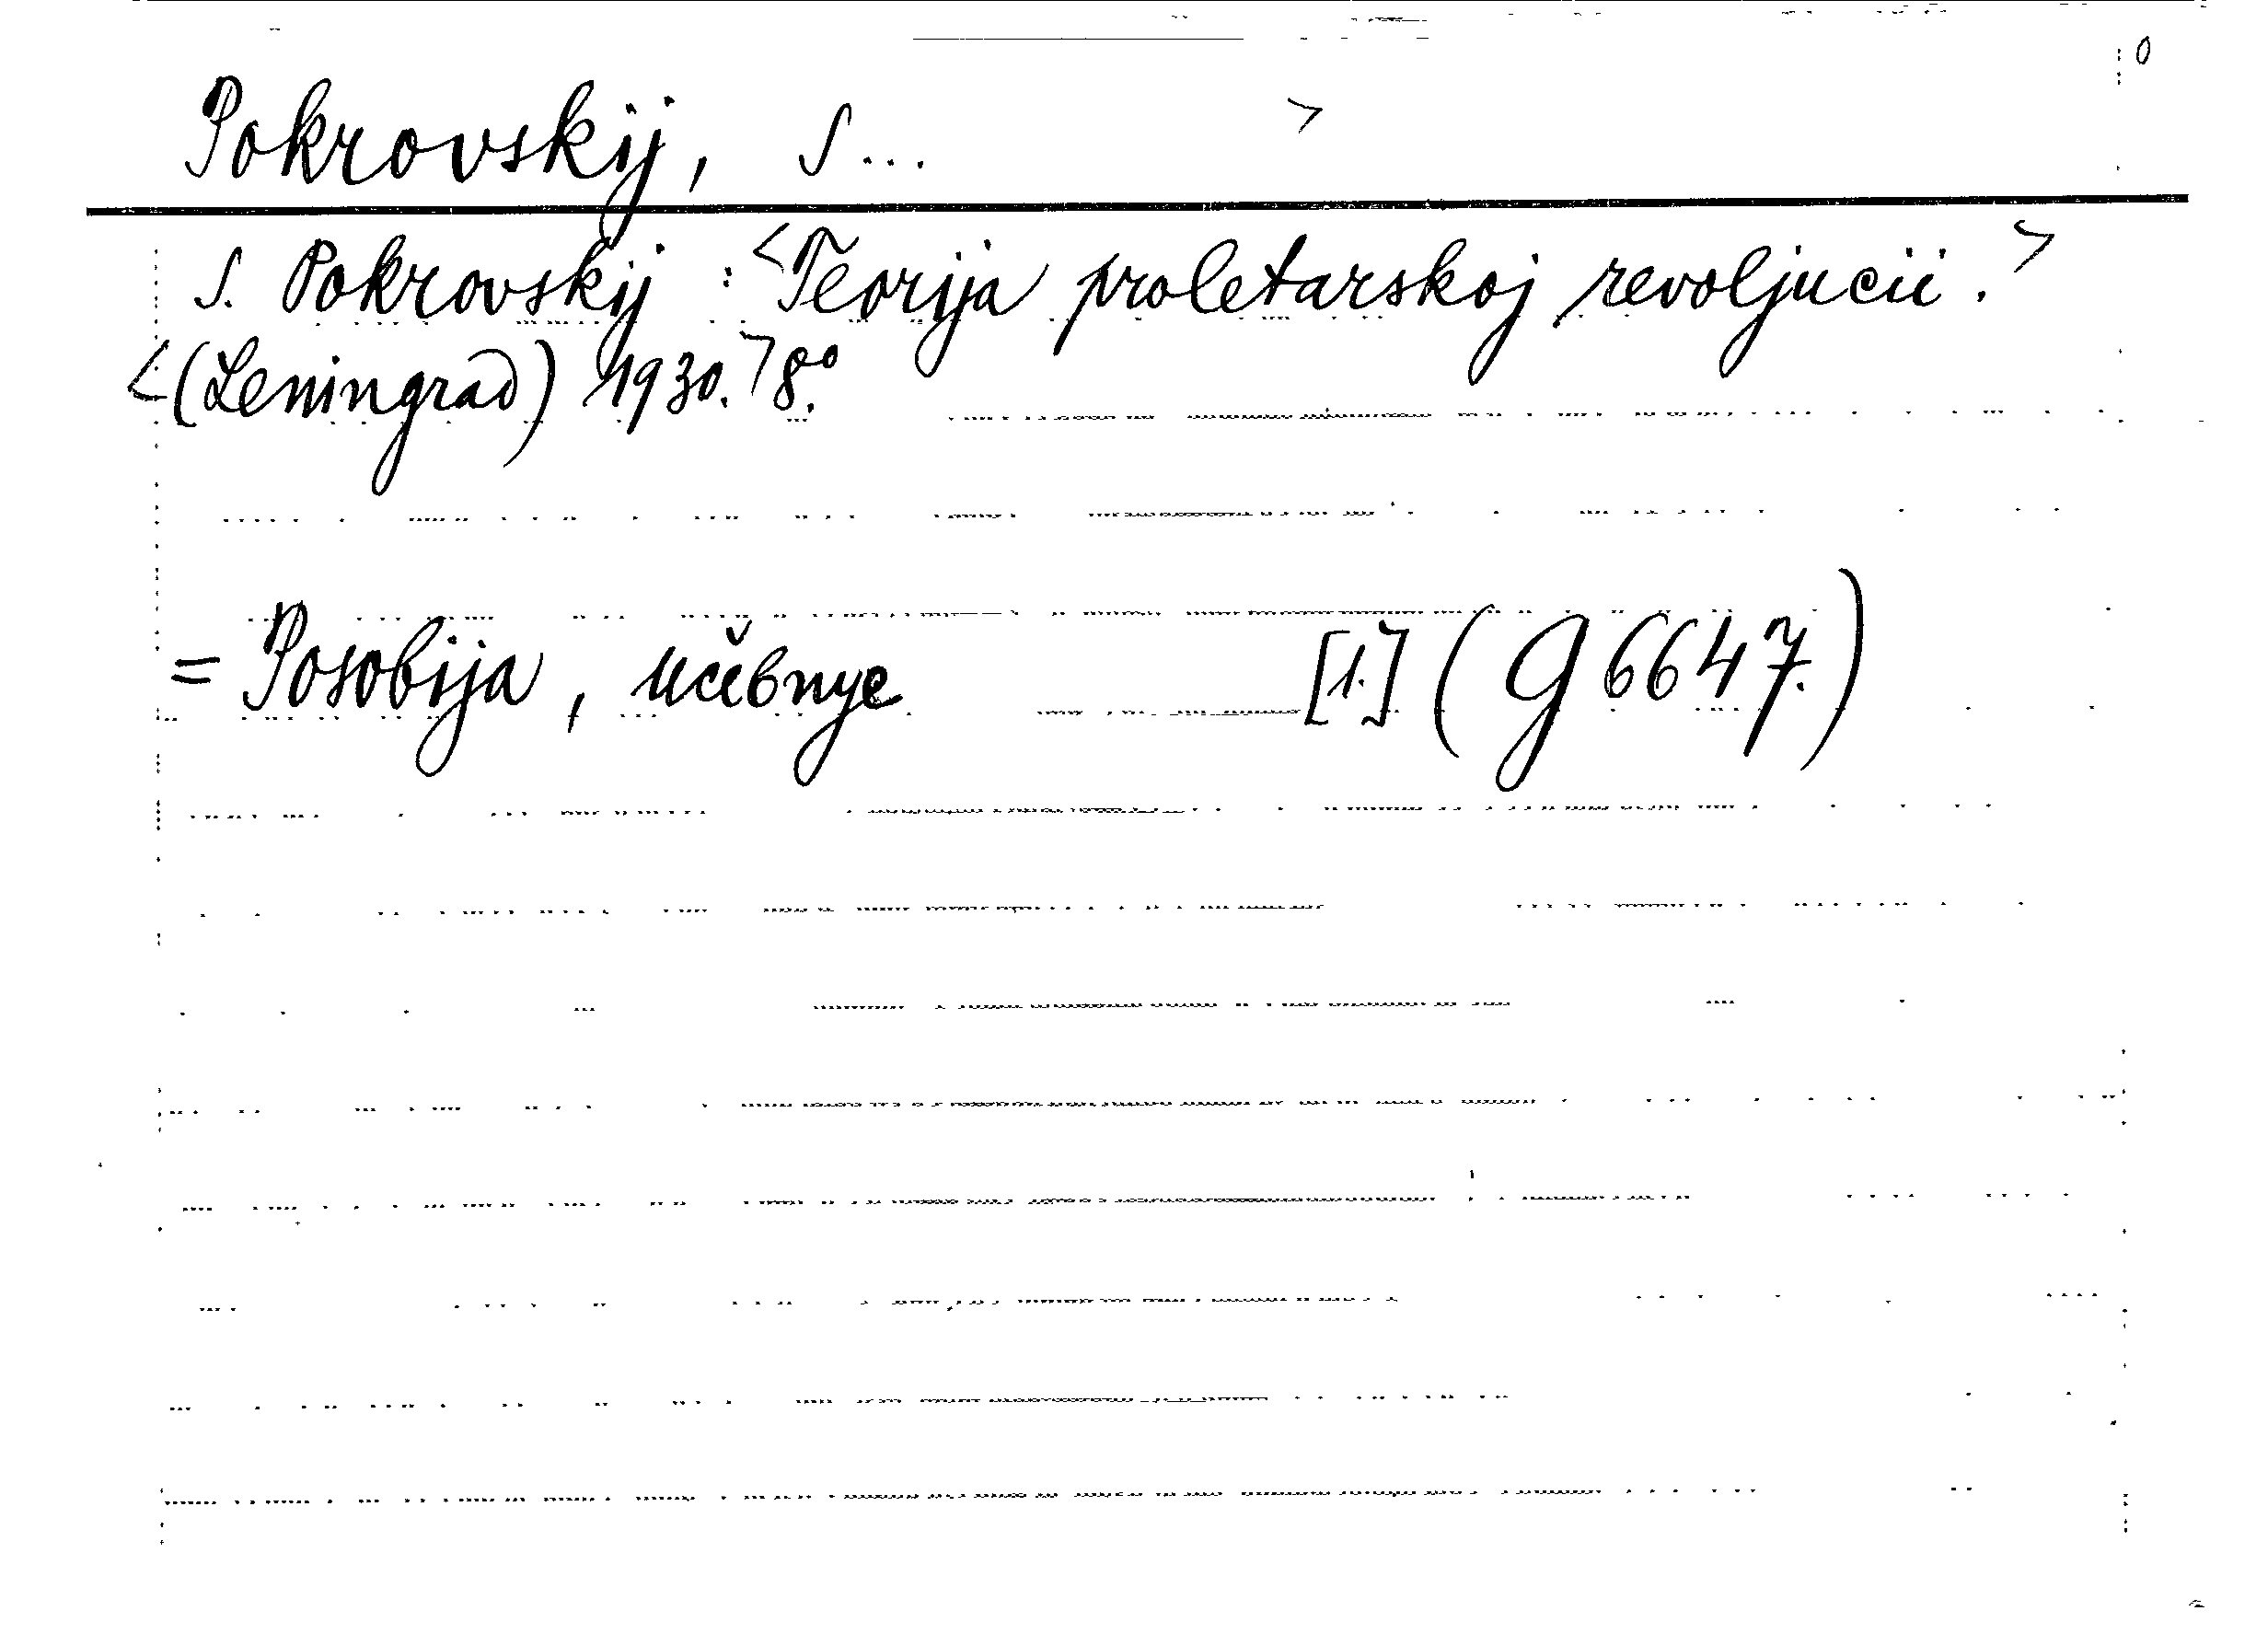 0
Pokrovskij, S... >
S. Pokrovskij : <Teorija proletarskoj revoljucii. >
<(Leningrad) 1930.> 8°.
= Posobija, učebnye [1.] (G 6647.)